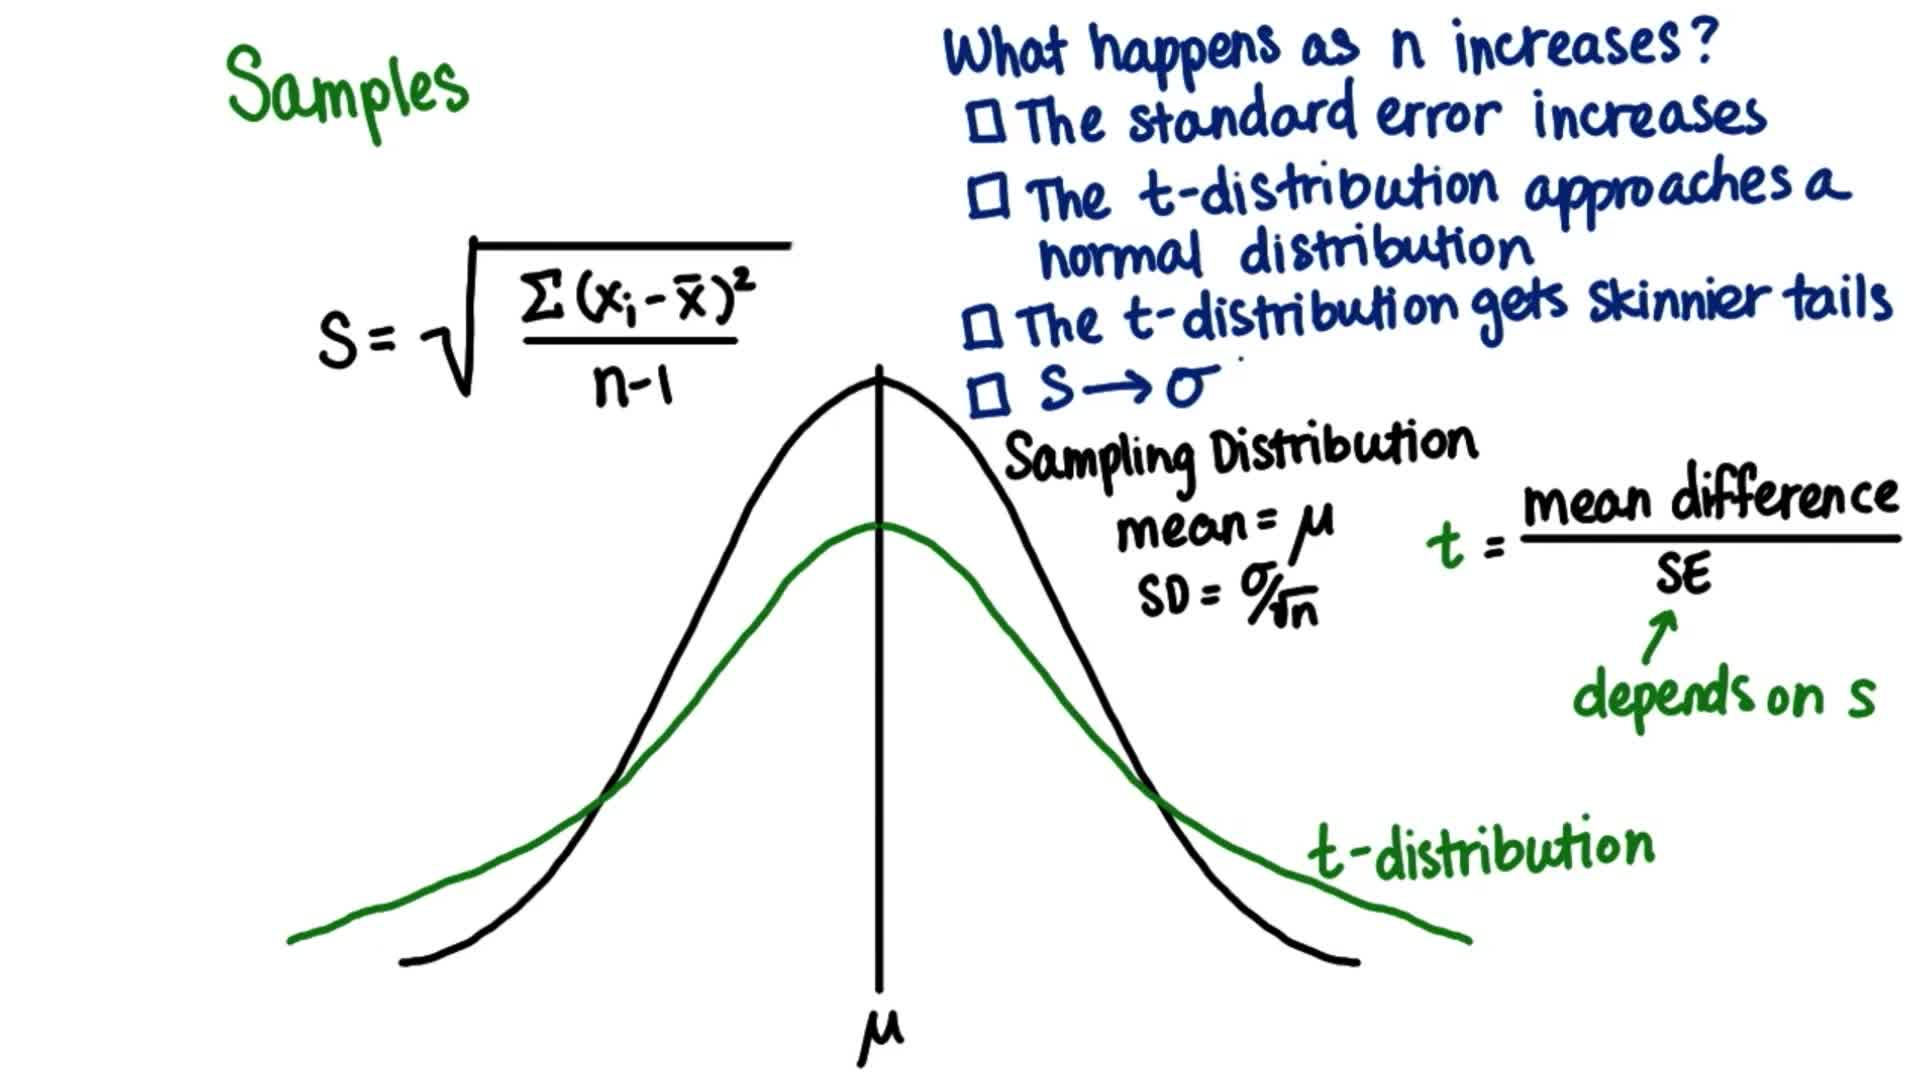 Samples
What happens as n increases?
□ The standard error increases
□ The t-distribution approaches a
normal distribution
□ The t-distribution gets skinnier tails
□ S → σ
S = √ Σ(xᵢ - x̄)² / n-1
Sampling Distribution
mean = μ
SD = σ/√n
t = mean difference / SE
depends on s
t-distribution
μ